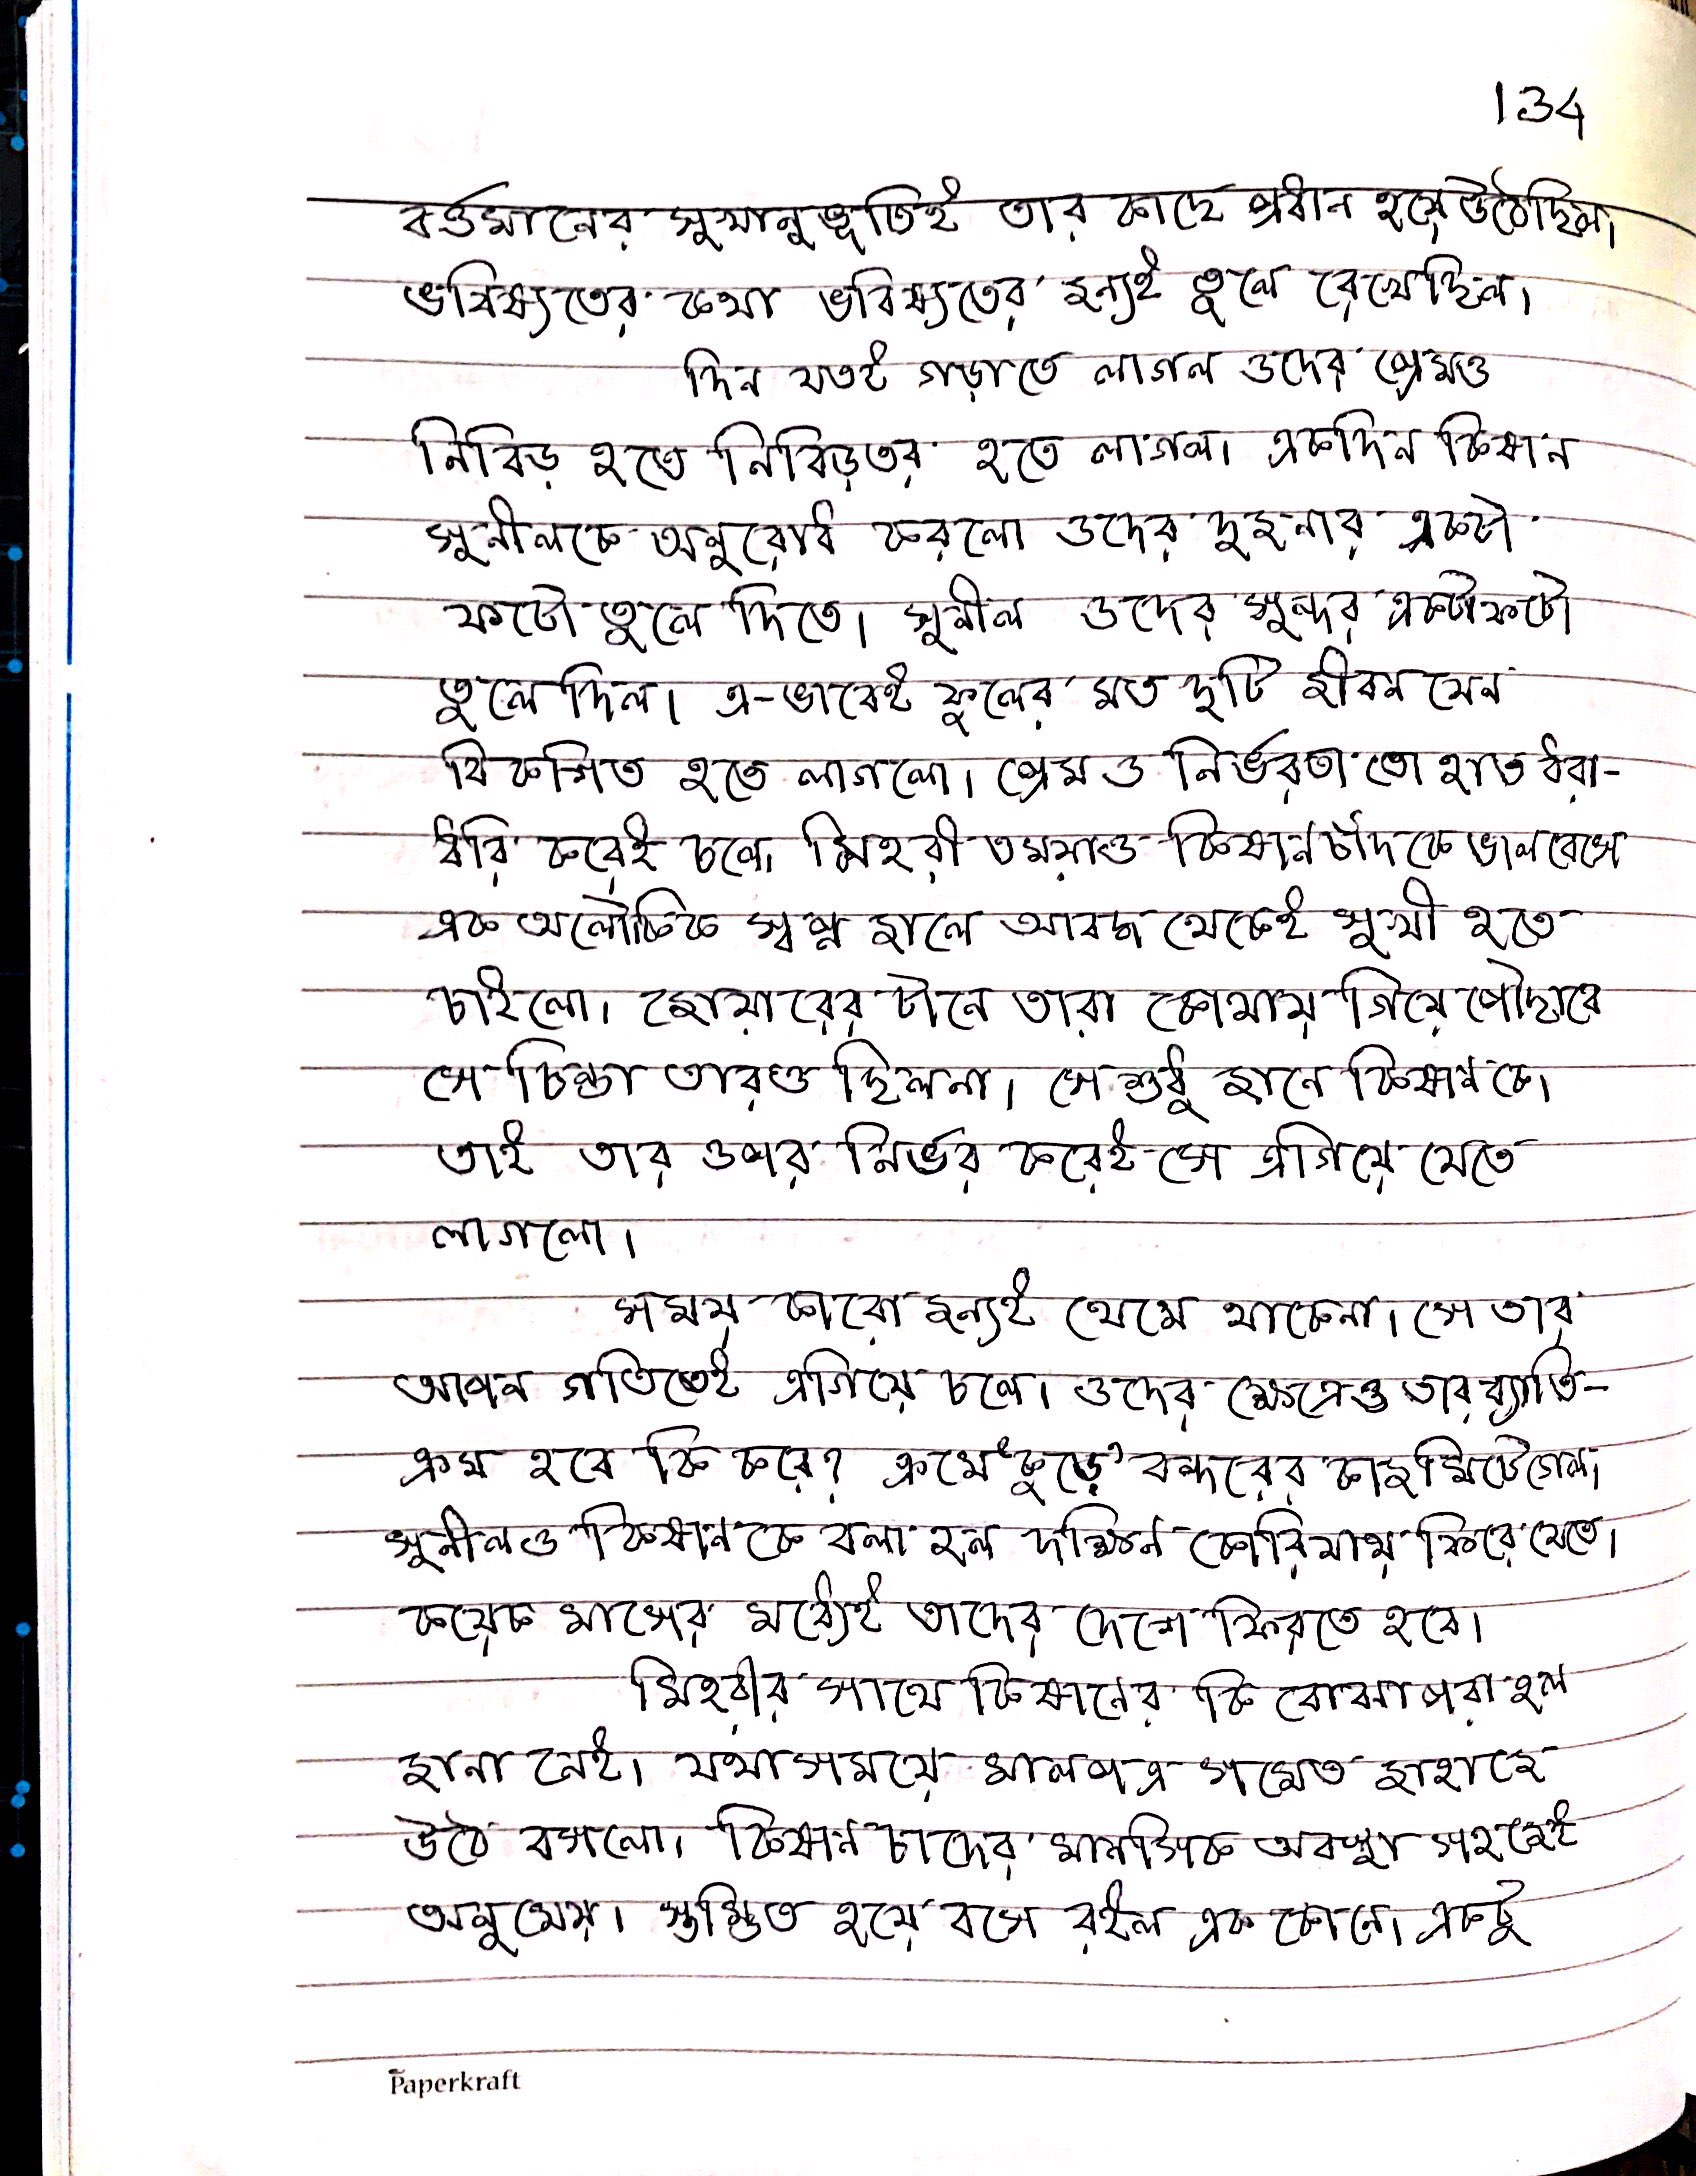 134
বর্ত্তমানের সুখানুভূতিই তার কাছে প্রধান হয়ে উঠেছিল।
ভবিষ্যতের কথা ভবিষ্যতের জন্যই তুলে রেখেছিল।
দিন যতই গড়াতে লাগল ওদের প্রেমও
নিবিড় হতে নিবিড়তর হতে লাগল। একদিন কিষান
সুনীলকে অনুরোধ করলো ওদের দুজনার একটা
ফটো তুলে দিতে। সুনীল ওদের সুন্দর একটা ফটো
তুলে দিল। এ-ভাবেই ফুলের মত দুটি জীবন যেন
বিকশিত হতে লাগলো। প্রেম ও নির্ভরতা তো হাত ধরা-
ধরি করেই চলে। মিহরী তময়াও কিষানচাঁদকে ভালবেসে
এক অলৌকিক স্বপ্ন জালে আবদ্ধ থেকেই সুখী হতে
চাইলো। জোয়ারের টানে তারা কোথায় গিয়ে পৌছাবে
সে চিন্তা তারও ছিলনা। সে শুধু জানে কিষানকে।
তাই তার ওপর নির্ভর করেই সে এগিয়ে যেতে
লাগলো।
সময় কারো জন্যই থেমে থাকেনা। সে তার
আপন গতিতেই এগিয়ে চলে। ওদের ক্ষেত্রেও তার ব্যাতি-
ক্রম হবে কি করে? ক্রমে 'কুড়ে' বন্দরের কাজ মিটে গেল।
সুনীল ও কিষানকে বলা হল দক্ষিন কোরিয়ায় ফিরে যেতে।
কয়েক মাসের মধ্যেই তাদের দেশে ফিরতে হবে।
মিহরীর সাথে কিষানের কি বোঝাপরা হল
জানা নেই। যথাসময়ে মালপত্র সমেত জাহাজে
উঠে বসলো। কিষানচাদের মানসিক অবস্থা সহজেই
অনুমেয়। স্তম্ভিত হয়ে বসে রইল এক কোনে। একটু
Paperkraft